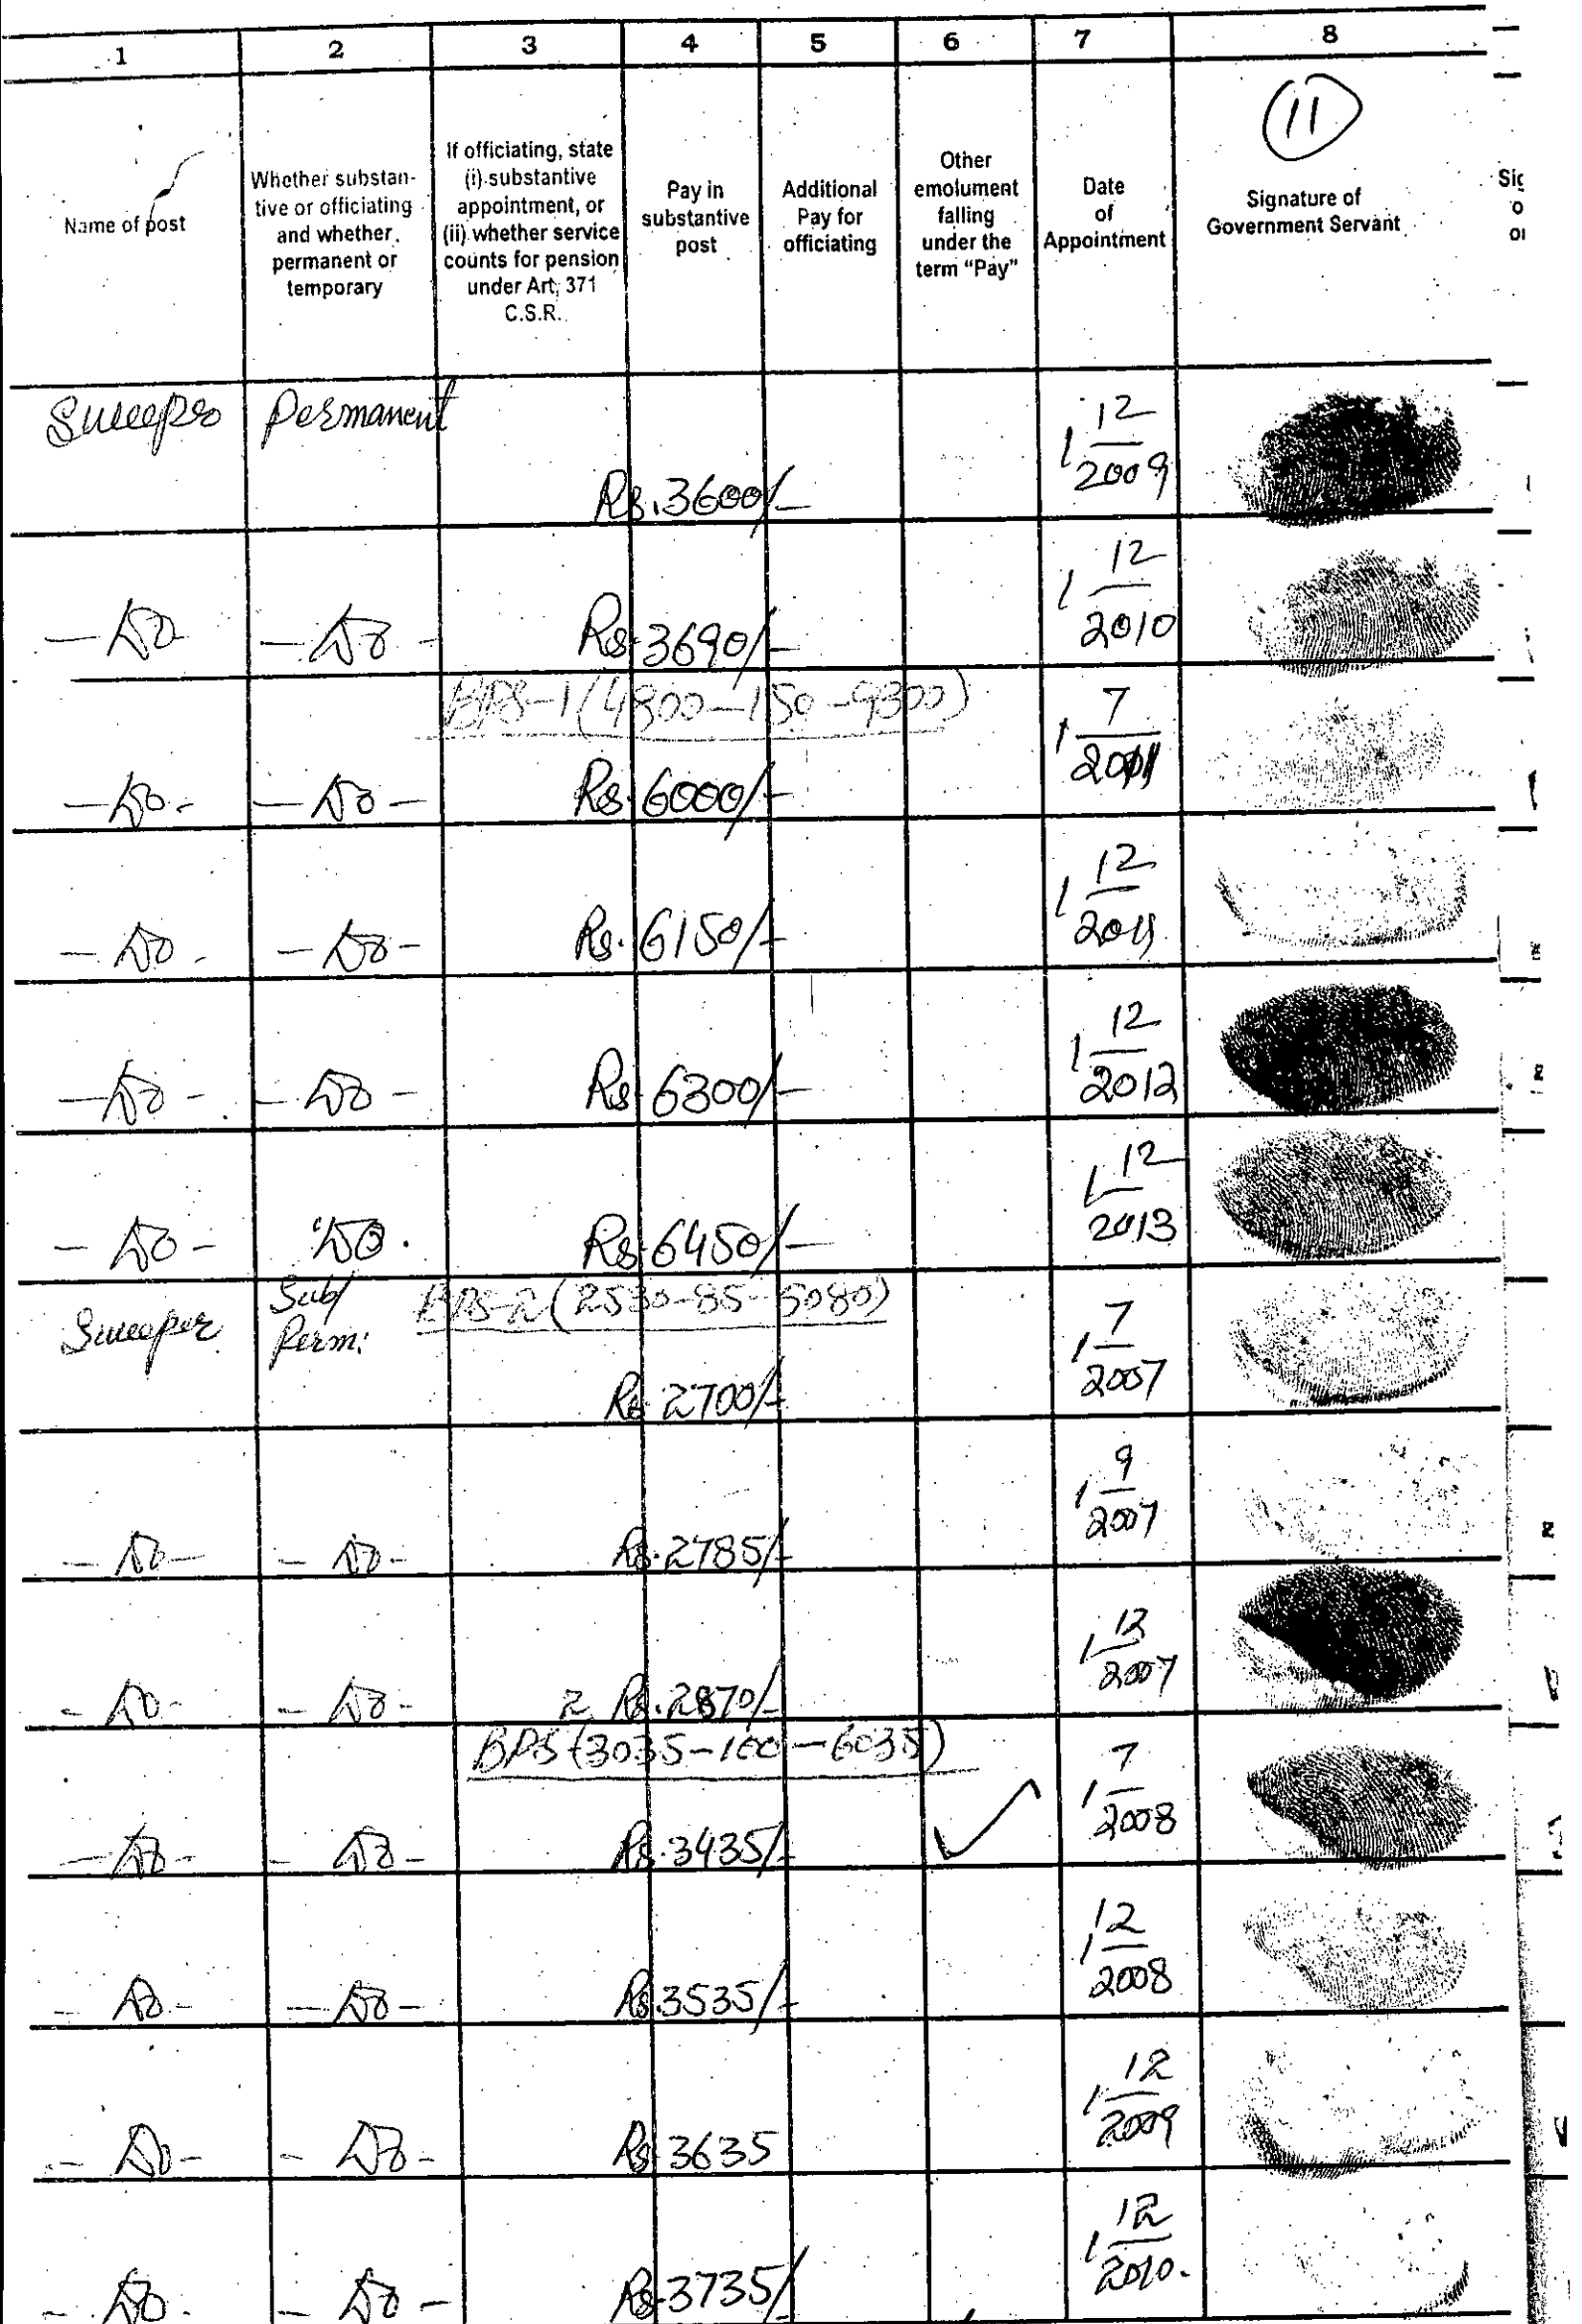 1 2 3 4 5 6 7 8
11
Name of post
Whether substan-
tive or officiating
and whether
permanent or
temporary
If officiating, state
(i) substantive
appointment, or
(ii) whether service
counts for pension
under Art, 371
C.S.R.
Pay in
substantive
post
Additional
Pay for
officiating
Other
emolument
falling
under the
term "Pay"
Date
of
Appointment
Signature of
Government Servant
Sweeper Permanent Rs.3600/- 1 12/2009
-do- -do- Rs.3690/- 1 12/2010
BPS-1(4800-150-9300)
-do- -do- Rs.6000/- 1 7/2011
-do- -do- Rs.6150/- 1 12/2011
-do- -do- Rs.6300/- 1 12/2012
-do- -do- Rs.6450/- 1 12/2013
BPS-2(2530-85-5080)
Sweeper Sub/ Perm: Rs.2700/- 1 7/2007
-do- -do- Rs.2785/- 1 9/2007
-do- -do- Rs.2870/- 1 12/2007
2
BPS(3035-100-6035)
-do- -do- Rs.3435/- 1 7/2008
-do- -do- Rs.3535/- 1 12/2008
-do- -do- Rs.3635 1 12/2009
-do- -do- Rs.3735/- 1 12/2010.